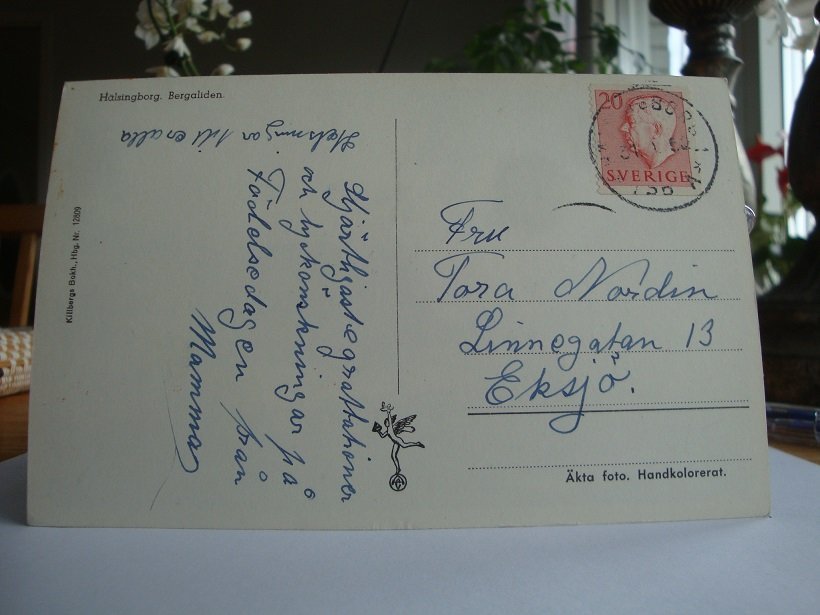 Hälsingborg. Bergaliden.
Hjärtligaste grattationer
och lyckönskningar på
Födelsedagen från
Mamma
Helsningar till er alla
Killbergs Bokh., Hbg. Nr. 12809
20
SVERIGE
Fru
Tora Nordin
Linnegatan 13
Eksjö.
Äkta foto. Handkolorerat.